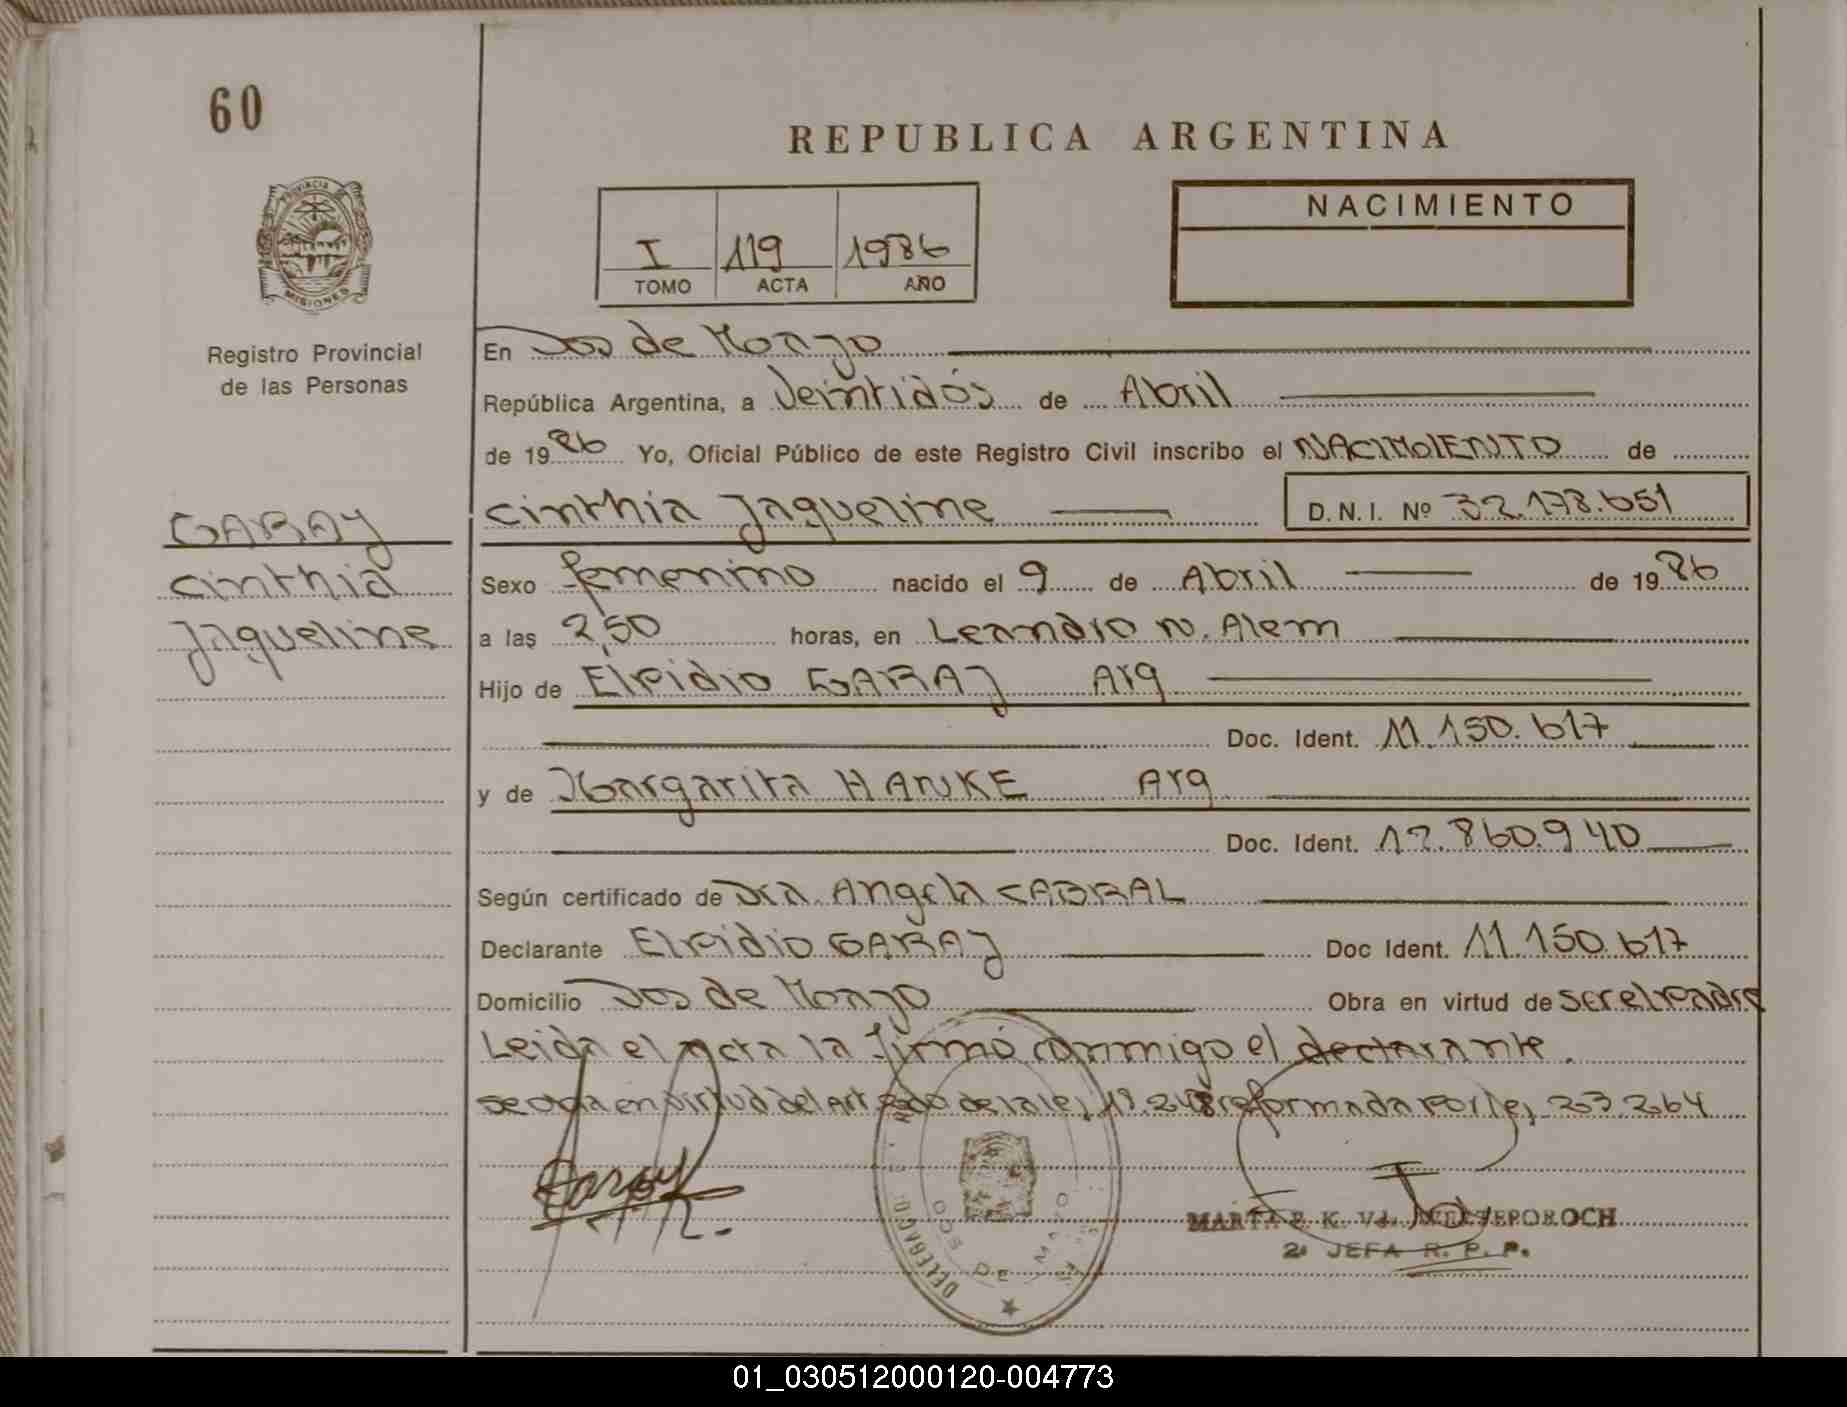 60
REPUBLICA ARGENTINA
PROVINCIA DE MISIONES
Registro Provincial
de las Personas
I 119 1986
TOMO ACTA AÑO
NACIMIENTO
En Dos de Mayo
República Argentina, a Veintidós de Abril
de 1986 Yo, Oficial Público de este Registro Civil inscribo el NACIMIENTO de
Cinthia Jaqueline D.N.I. Nº 32.178.651
GARAY
Cinthia
Jaqueline
Sexo femenino nacido el 9 de Abril de 1986
a las 2,50 horas, en Leandro N. Alem
Hijo de Elpidio GARAY Arg
Doc. Ident. 11.150.617
y de Margarita HANKE Arg
Doc. Ident. 12.860.940
Según certificado de Dra. Angela CABRAL
Declarante Elpidio GARAY Doc Ident. 11.150.617
Domicilio Dos de Mayo Obra en virtud de ser el padre
Leida el acta la firmó conmigo el declarante.
se oga en virtud del Art de la ley 19.248 reformada por ley 23.264
Garay
DE MAYO
MARTA E. K. Vd.
2º JEFA R. P. P.
01_030512000120-004773